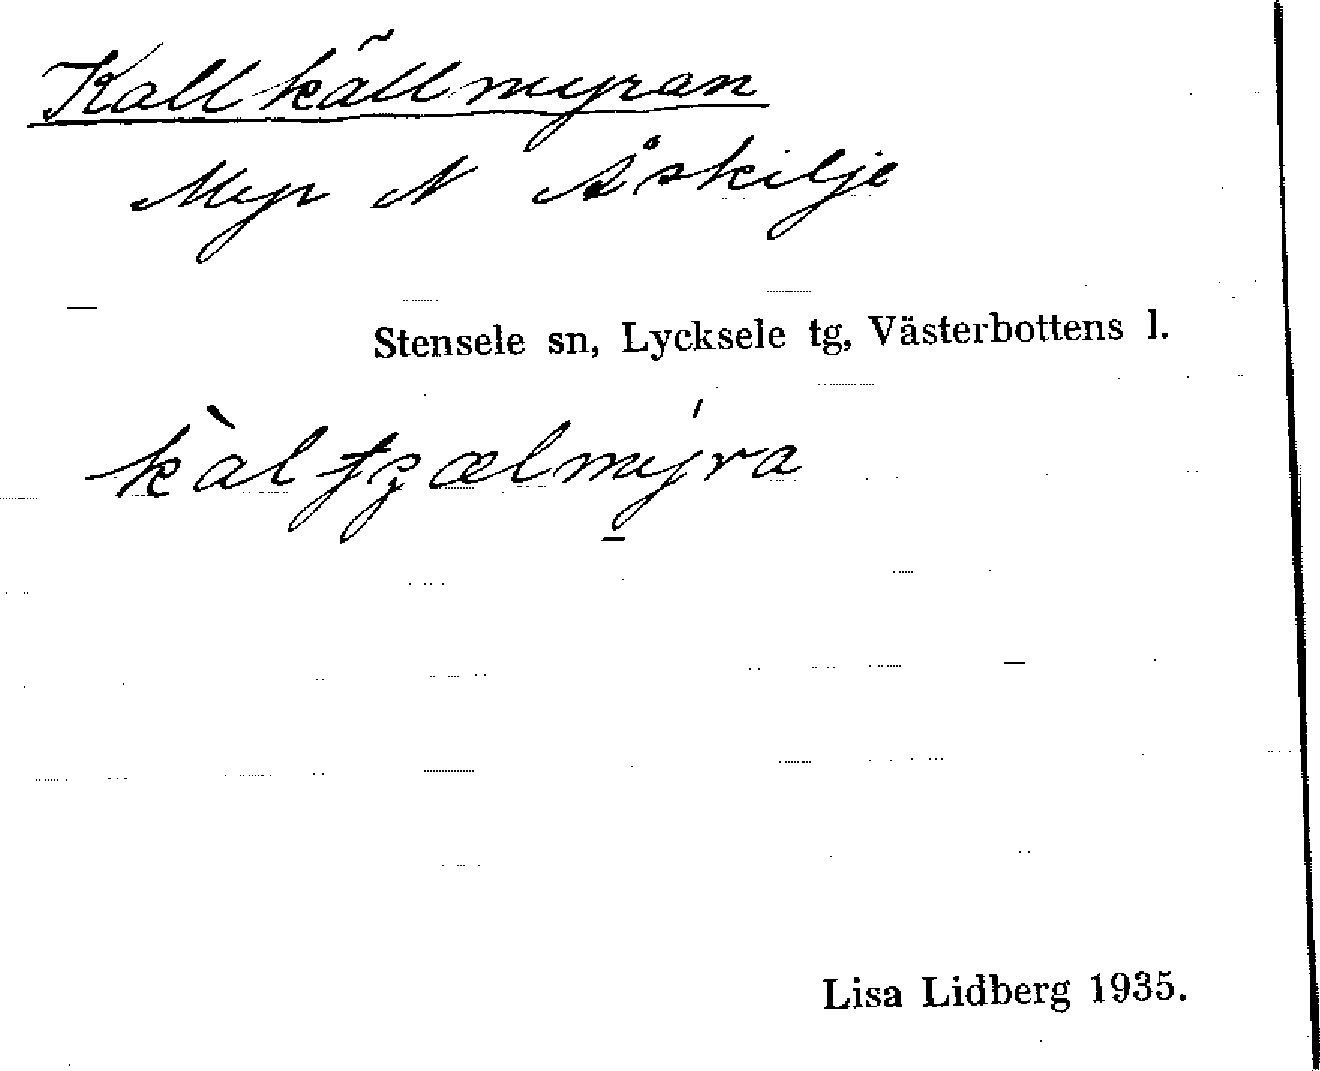 Kallkällmyran
Myr N Åskilje
Stensele sn, Lycksele tg, Västerbottens l.
kàlʈȥælmýra
Lisa Lidberg 1935.